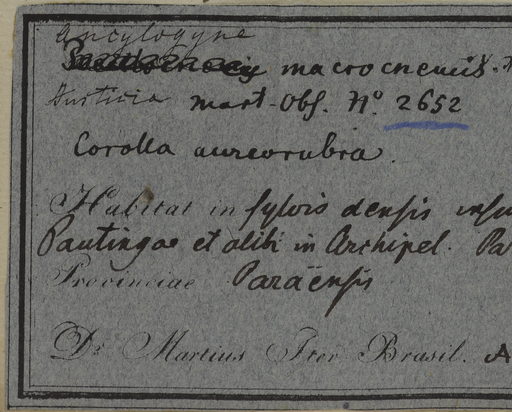 Ancylogyne
macrocnemis.
Justicia Mart. Obs. No. 2652
Corolla aureorubra.
Habitat in sylvis densis insu
Pautingae et alibi in Archipel. Pa
Provinciae Paraënsis
Dr. Martius Iter Brasil. A